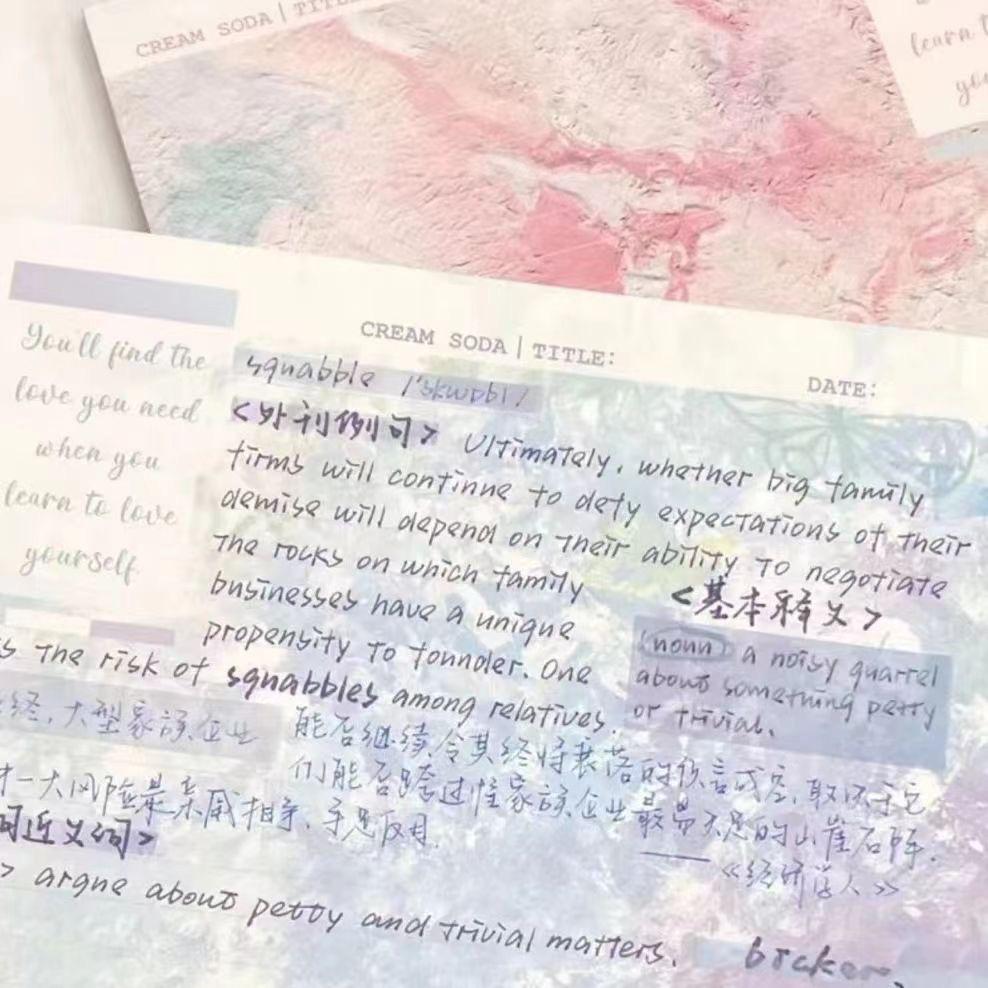 CREAM SODA | TITLE
learn t
you
CREAM SODA | TITLE:
DATE:
You'll find the
love you need
when you
learn to love
yourself
squabble /'skwɒbl/
<外刊例句> Ultimately, whether big family
firms will continue to defy expectations of their
demise will depend on their ability to negotiate
the rocks on which family
businesses have a unique
propensity to founder. One
is the risk of squabbles among relatives.
<基本释义>
(noun) a noisy quarrel
about something petty
or trivial.
经,大型家族企业 能否继续令其终将衰落的预言成空,取决于它
们能否跨过惟家族企业最易
才一大风险是亲戚相争,
《经济学人》
近义词>
> argue about petty and trivial matters. bicker,